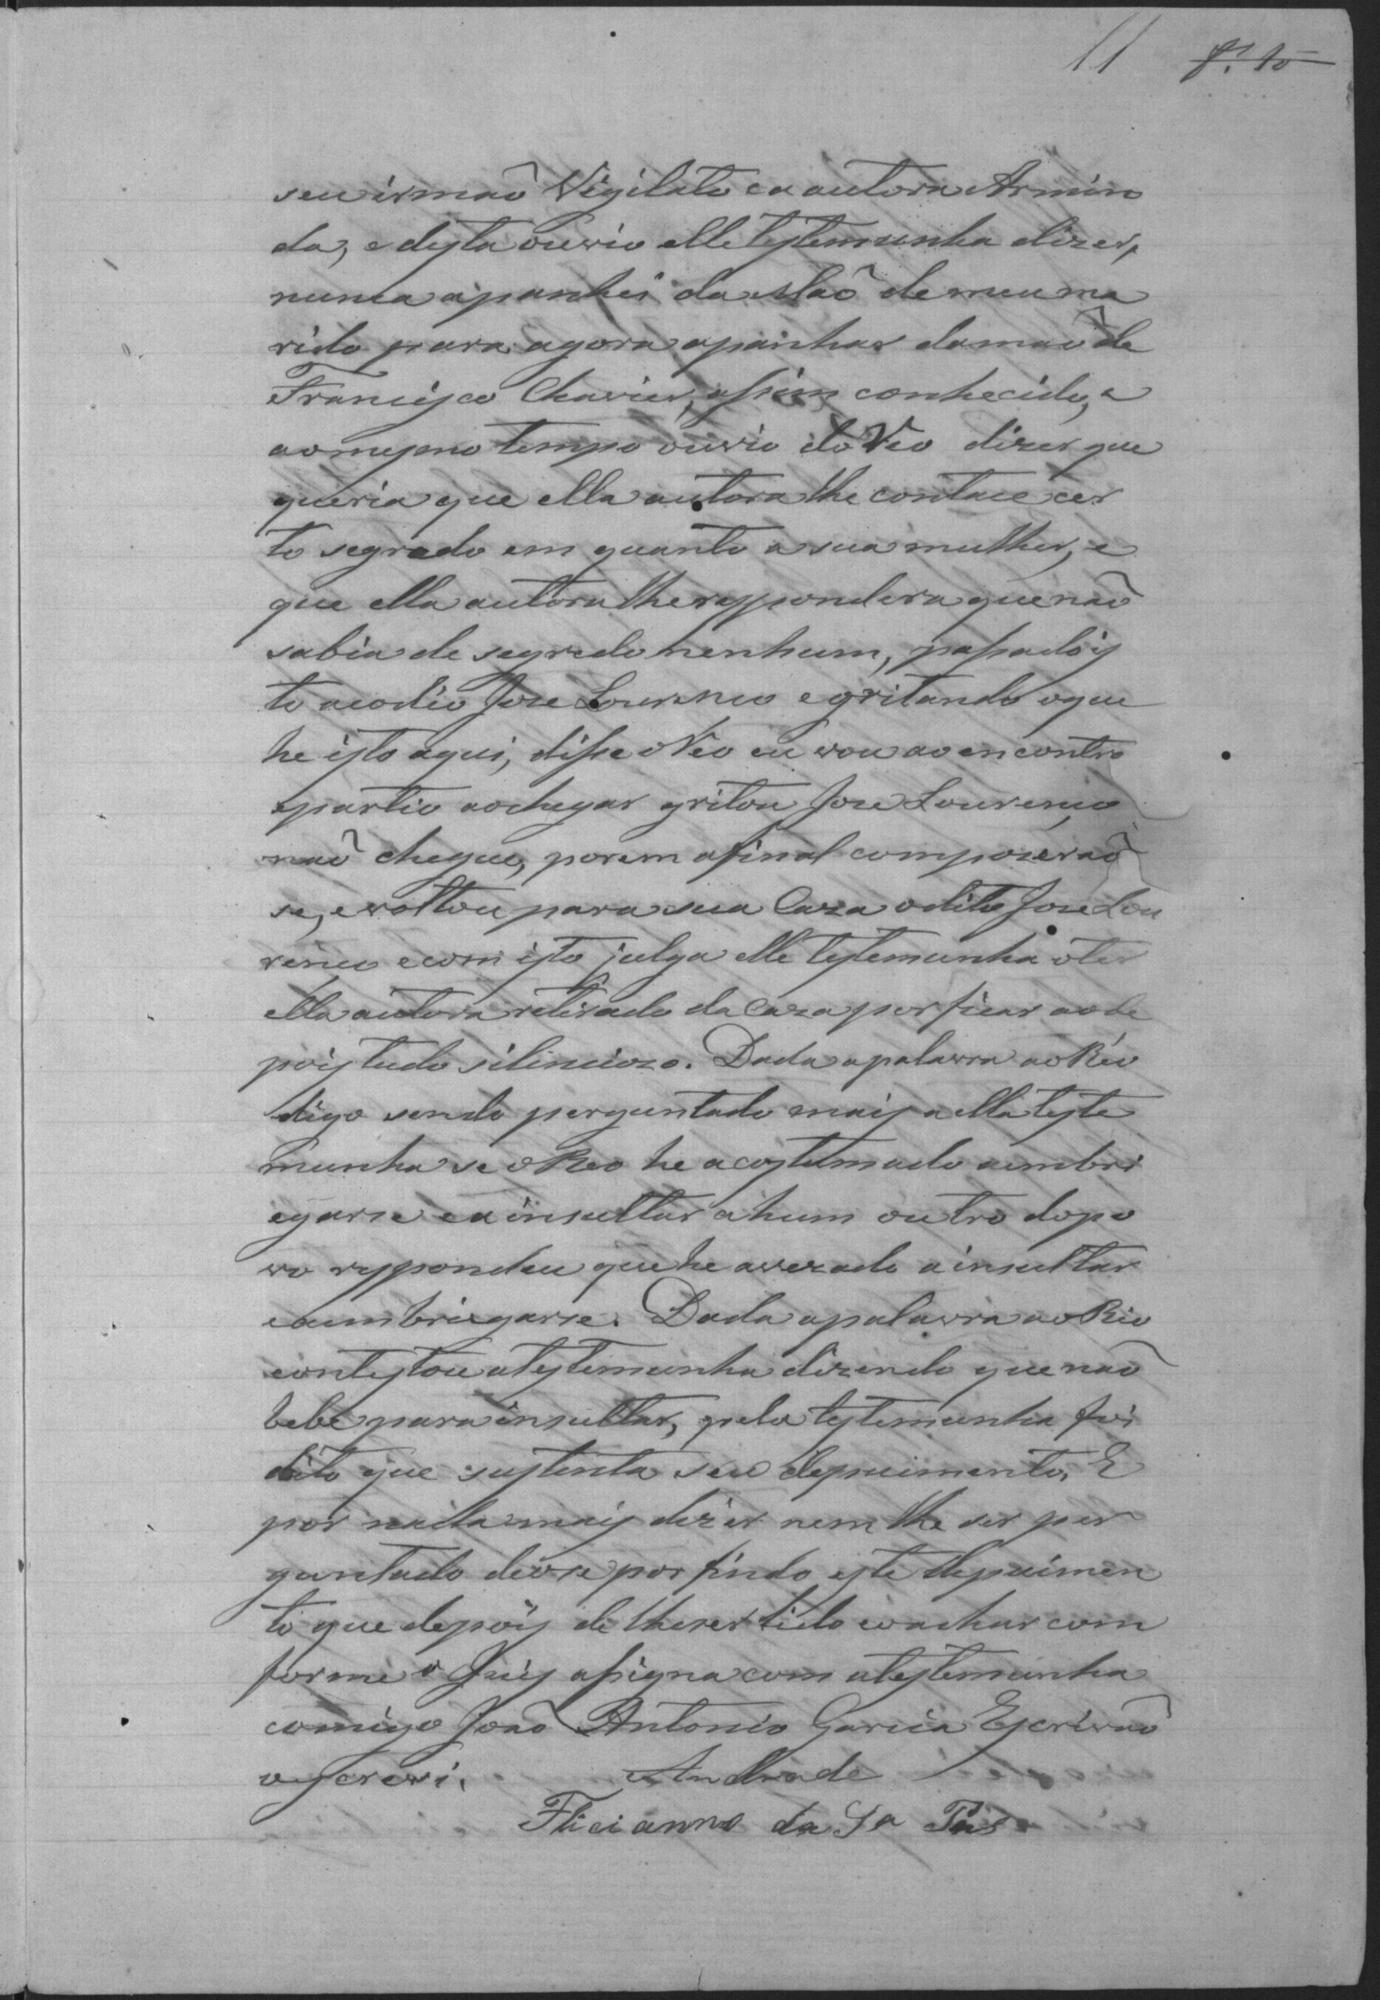 11 fs. 10
seu irmaõ Vigilato e a autora Armin
da, e desta ouvio elle testemunha dizer,
nunca apanhei da Maõ de meu ma
rido para agora apanhar da maõ de
Francisco Chavier, assim conhecido, e
ao mesmo tempo ouvio do Reo dizer que
queria que ella autora lhe contace cer
to segredo em quanto a sua mulher, e
que ella autora lhe respondera que naõ
sabia de segredo nenhum, passado is
to acodio Jose Lourenco e gritando o que
he isto aqui, disse o Reo eu vou ao encontro
e partio ao chegar gritou Jose Lourenço
naõ chegue, porem afinal compozeraõ
se, e voltou para sua Caza o dito Jose Lou
renco e com isto julga elle testemunha o ter
ella autora retirado da Caza por ficar ao de
pois tudo silenciozo. Dada a palavra ao Réo
digo sendo perguntado mais a ella teste
munha se o Reo he acostumado a embri
agarse e a insultar a hum outro do po
vo respondeu que he avezado a insultar
e a embriagarse. Dada a palavra ao Reo
contestou a testemunha dizendo que naõ
bebe para insultar, pela testemunha foi
dito que sustenta seu depuimento. E
por nada mais dizer nem lhe ser per
guntado deose por findo este depuimen
to que depois de lhe ser lido e o achar com
forme o Juis assigna com a testemunha
comigo Joaõ Antonio Garcia Escrivaõ
o escrevi. Andrade
Flicianno da Sa Pais